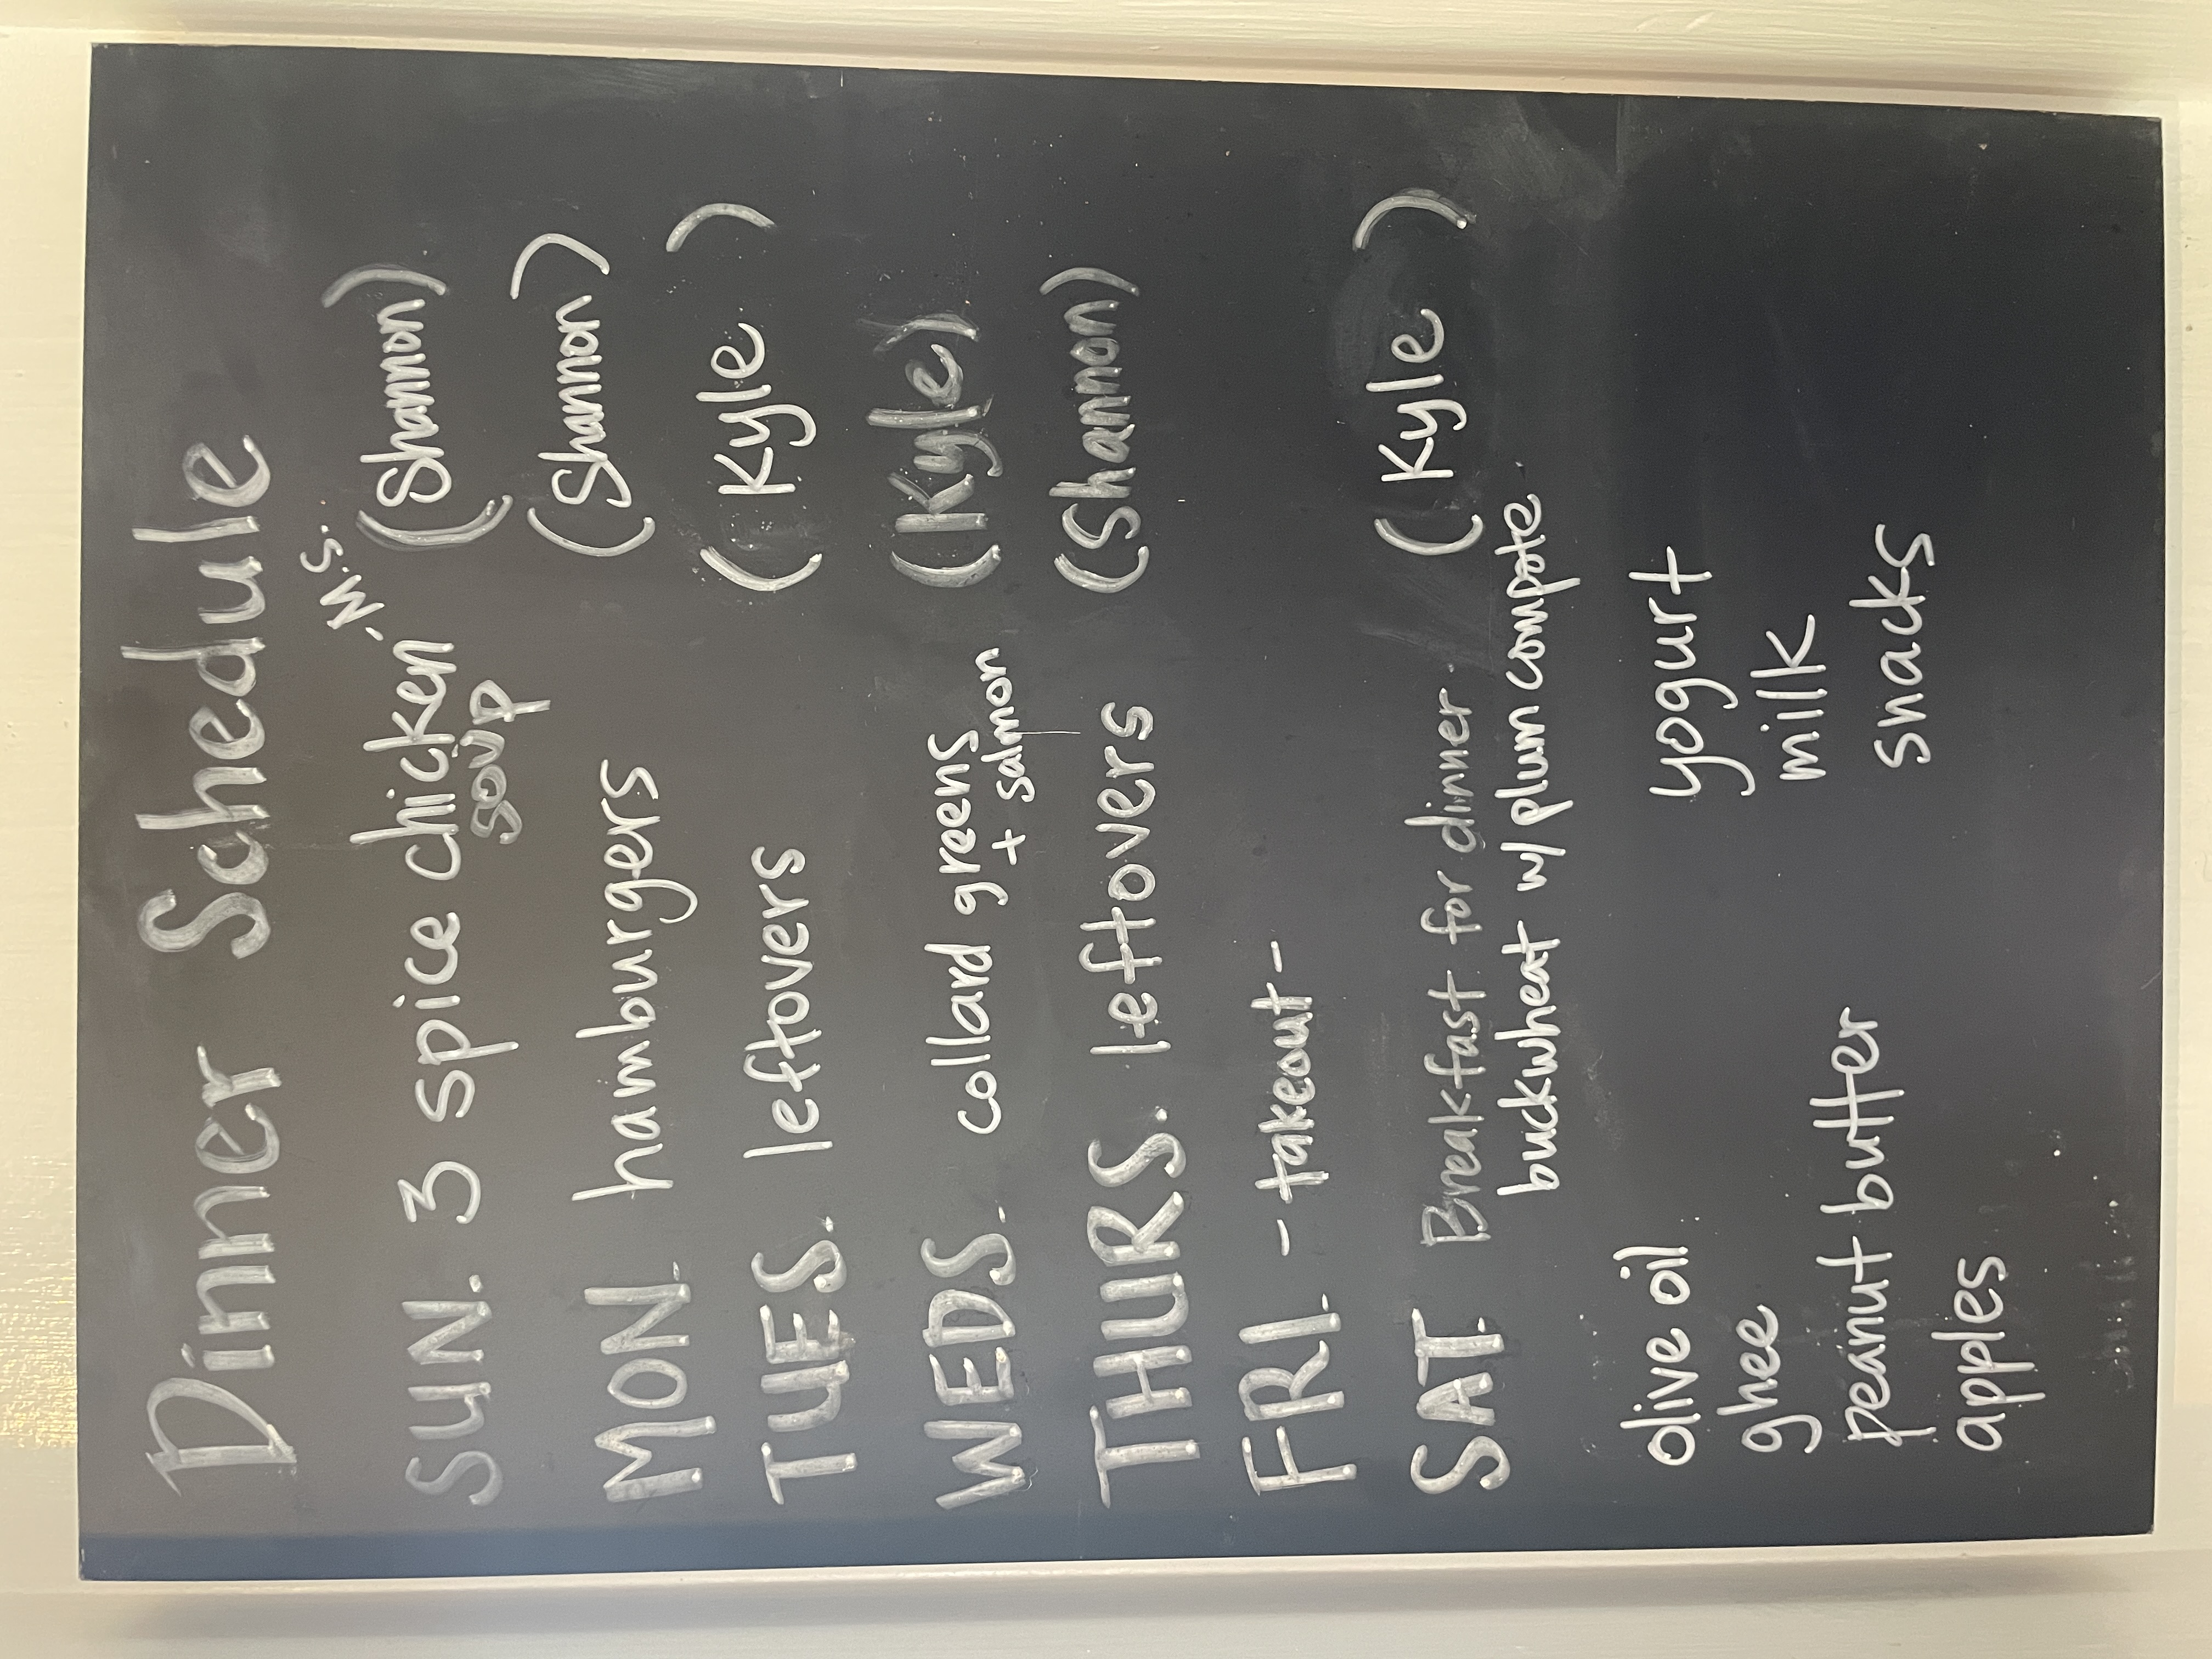 Dinner Schedule
SUN. 3 spice chicken -M.S. (Shannon)
soup
MON. hamburgers (Shannon)
TUES. leftovers (Kyle)
WEDS. collard greens (Kyle)
+ salmon
THURS. leftovers (Shannon)
FRI. -takeout-
SAT. Breakfast for dinner (Kyle)
buckwheat w/ plum compote
olive oil
ghee
peanut butter
apples
yogurt
milk
snacks